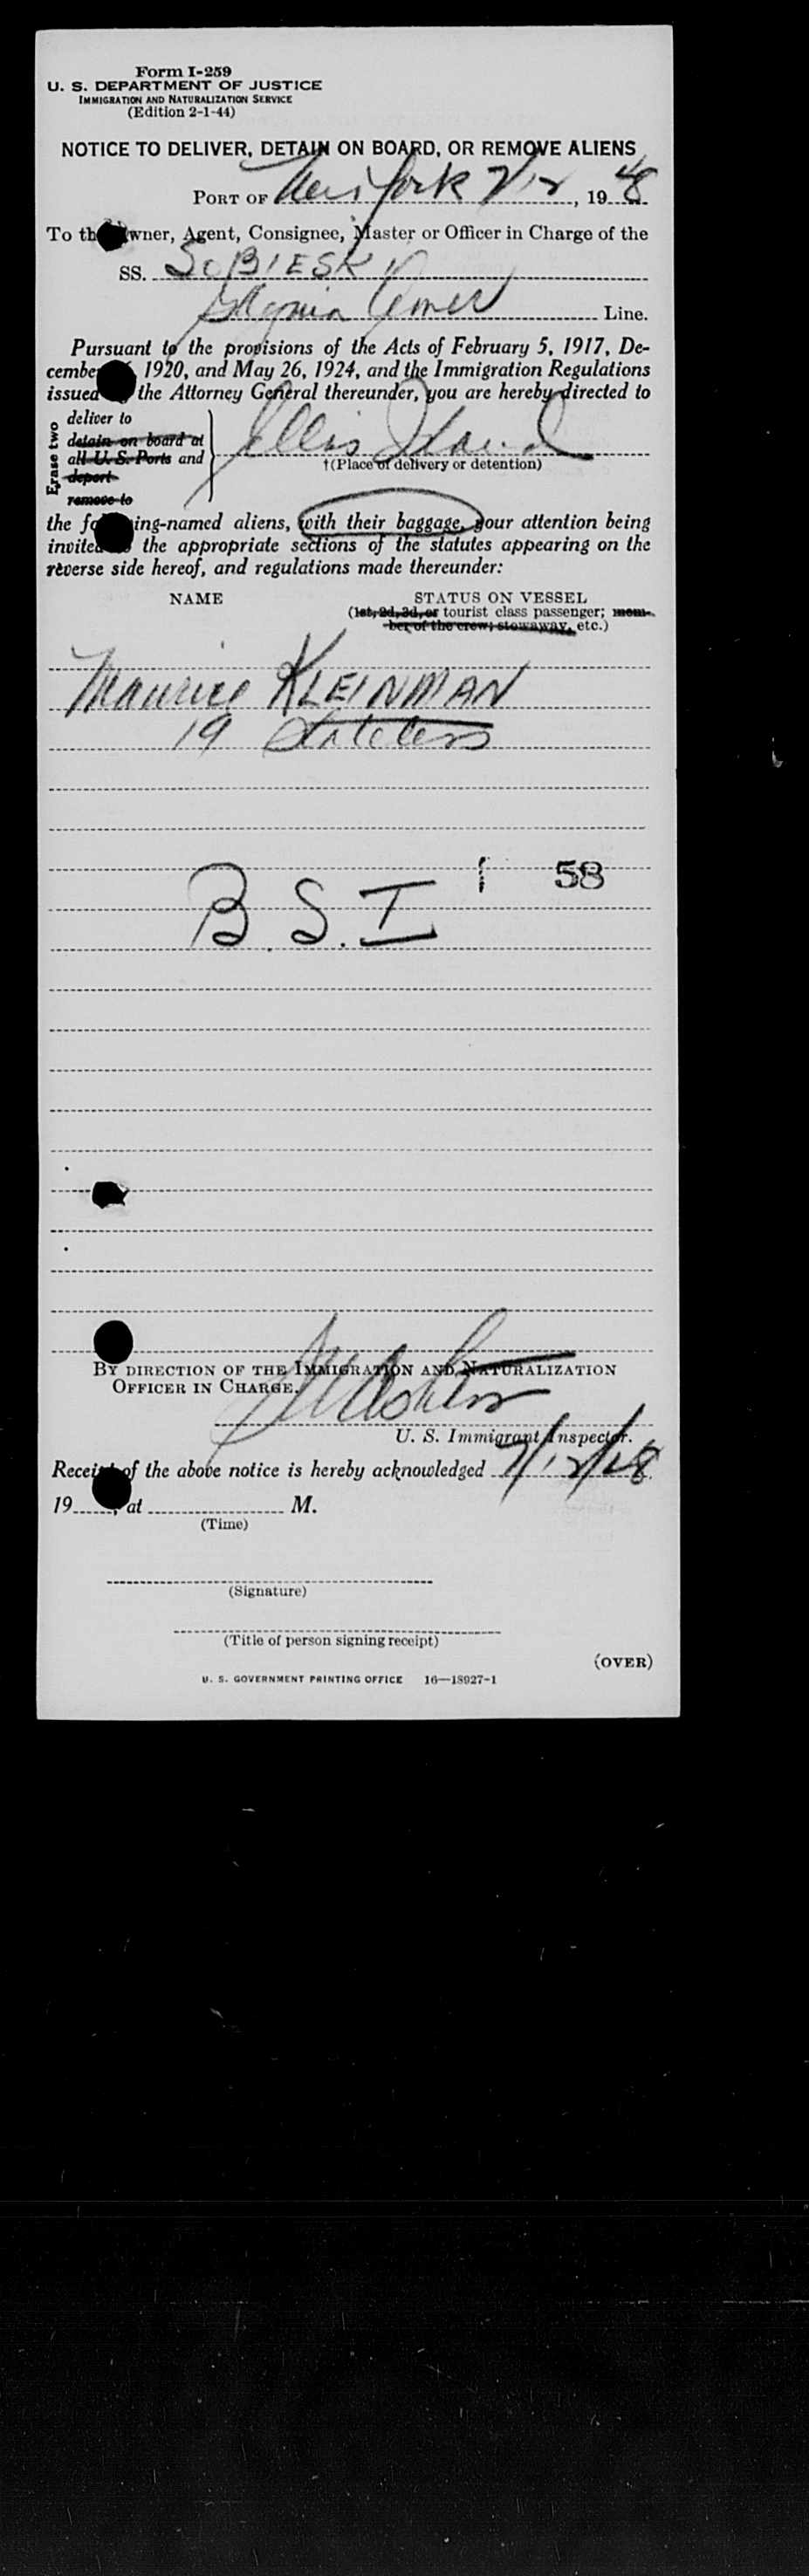 Form I-259
U. S. DEPARTMENT OF JUSTICE
IMMIGRATION AND NATURALIZATION SERVICE
(Edition 2-1-44)
NOTICE TO DELIVER, DETAIN ON BOARD, OR REMOVE ALIENS
PORT OF New York 7/12, 1948
To th wner, Agent, Consignee, Master or Officer in Charge of the
SS. SOBIESKI
Line.
Pursuant to the provisions of the Acts of February 5, 1917, De-
cembe 1920, and May 26, 1924, and the Immigration Regulations
issued the Attorney General thereunder, you are hereby directed to
Erase two
deliver to
detain on board at
all U. S. Ports and
deport
remove to
Ellis Island
†(Place of delivery or detention)
the fo ing-named aliens, with their baggage, your attention being
invited the appropriate sections of the statutes appearing on the
reverse side hereof, and regulations made thereunder:
NAME STATUS ON VESSEL
(1st, 2d, 3d, or tourist class passenger; mem-
ber of the crew; stowaway, etc.)
Maurice KLEINMAN
19 Stateless
58
B. S. I
BY DIRECTION OF THE IMMIGRATION AND NATURALIZATION
OFFICER IN CHARGE.
U. S. Immigrant Inspector.
Receipt of the above notice is hereby acknowledged 7/12/48
19 , at M.
(Time)
(Signature)
(Title of person signing receipt)
(OVER)
U. S. GOVERNMENT PRINTING OFFICE 16—18927-1